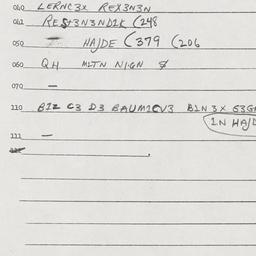 060 LERNC3X REX3N3N
061 RES+3N3ND1K (248
050 — HAJDE (379 (206
060 QH MLTN N1GN $
070 —
110 B1Z C3 D3 BAUM1CV3 B1N 3X 63G
1N HAJD
111 —